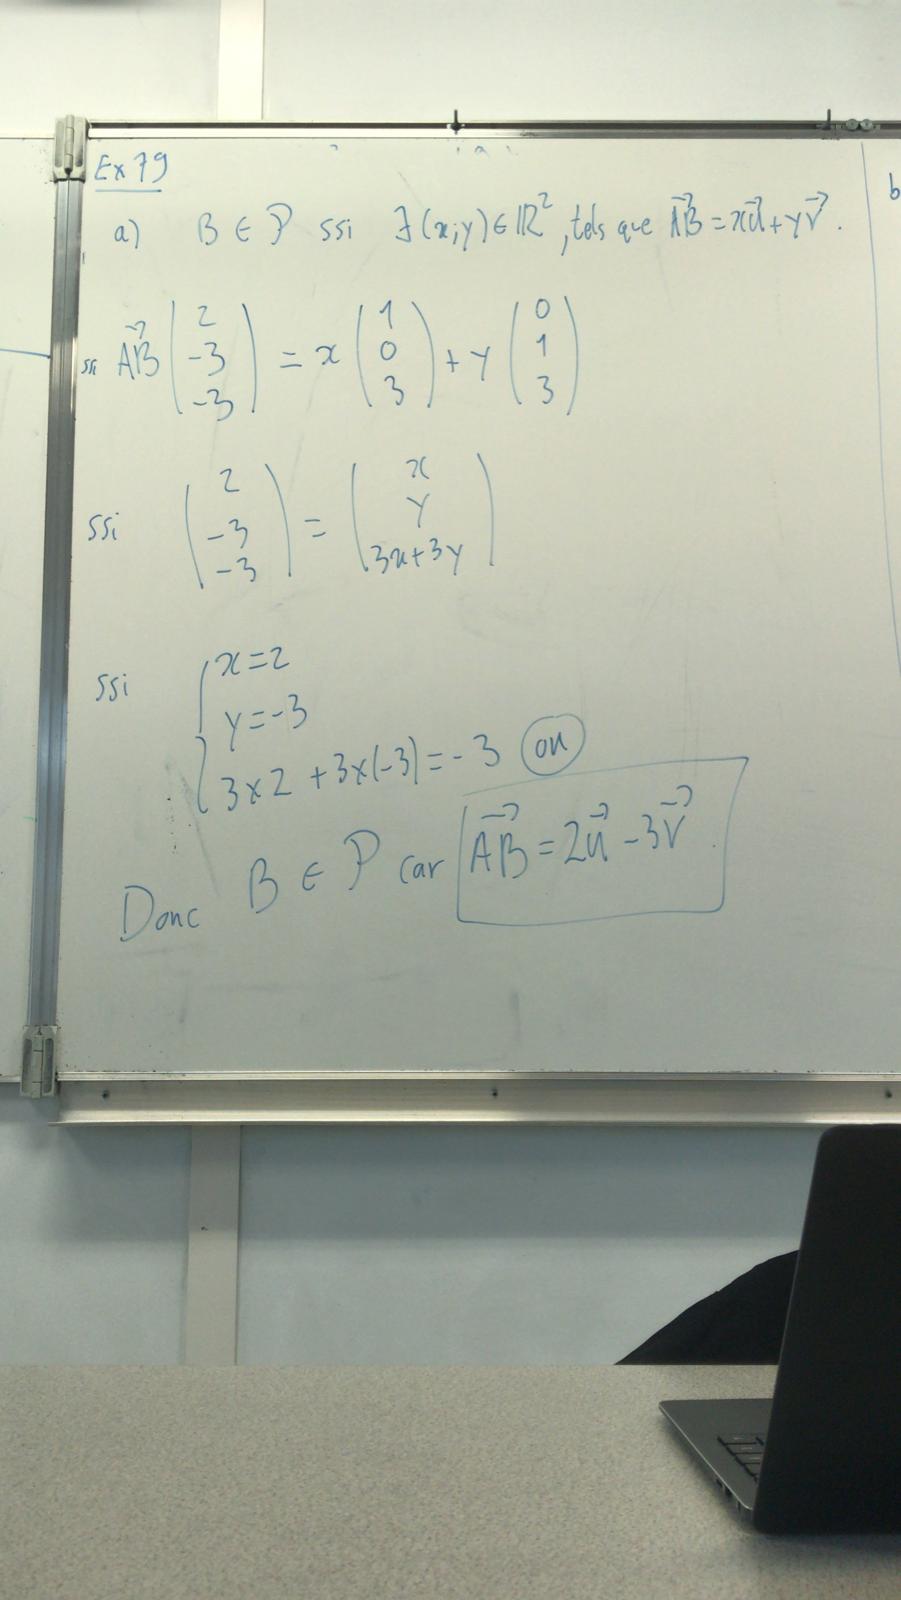 Ex 79
a) B ∈ P ssi ∃(x;y)∈ℝ², tels que AB⃗ = xu⃗ + yv⃗.
ssi AB⃗ (2 -3 -3) = x (1 0 3) + y (0 1 3)
ssi (2 -3 -3) = (x y 3x+3y)
ssi { x=2
y=-3
3×2 + 3×(-3) = -3 oui
Donc B ∈ P car AB⃗ = 2u⃗ - 3v⃗.
b